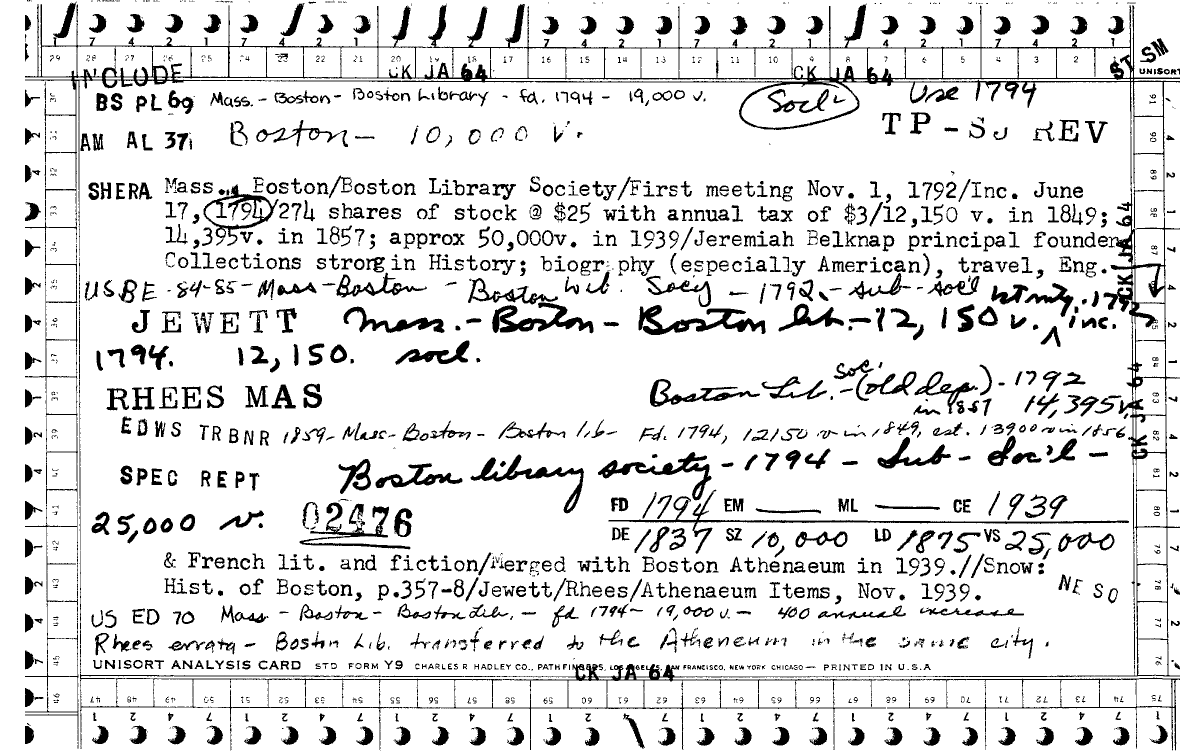 INCLUDE CK JA 64 CK JA 64 ST SM UNISORT
BS PL 69 Mass. - Boston - Boston Library - fd. 1794 - 19,000 v. Socl Use 1794
AM AL 37 Boston - 10,000 v. TP - SJ REV
SHERA Mass... Boston/Boston Library Society/First meeting Nov. 1, 1792/Inc. June
17, 1794/274 shares of stock @ $25 with annual tax of $3/12,150 v. in 1849;
14,395v. in 1857; approx 50,000v. in 1939/Jeremiah Belknap principal founder
Collections strong in History; biography (especially American), travel, Eng.
CK JA 64
USBE - 84-85 - Mass - Boston - Boston Lib. Socy - 1792 - sub - soc'l
JEWETT Mass. - Boston - Boston lib. - 12,150 v. 1st mtg. 1792 inc.
1794. 12,150. socl.
RHEES MAS Boston Lib. Soc. - (old dep.) - 1792
in 1857 14,395v.
CK JA 64
EDWS TRBNR 1859 - Mass - Boston - Boston lib - Fd. 1794, 12150 v in 1849, est. 13900 v in 1856
SPEC REPT Boston library society - 1794 - Sub - Soc'l -
25,000 v. 02476 FD 1794 EM ML CE 1939
DE 1837 SZ 10,000 LD 1875 VS 25,000
& French lit. and fiction/Merged with Boston Athenaeum in 1939.//Snow:
Hist. of Boston, p.357-8/Jewett/Rhees/Athenaeum Items, Nov. 1939. NE SO
US ED 70 Mass - Boston - Boston Lib. - fd 1794 - 19,000 v. - 400 annual increase
Rhees errata - Bostn Lib. transferred to the Atheneum in the same city.
UNISORT ANALYSIS CARD STD FORM Y9 CHARLES R HADLEY CO., PATHFINDERS, LOS ANGELES, SAN FRANCISCO, NEW YORK CHICAGO — PRINTED IN U.S.A
CK JA 64